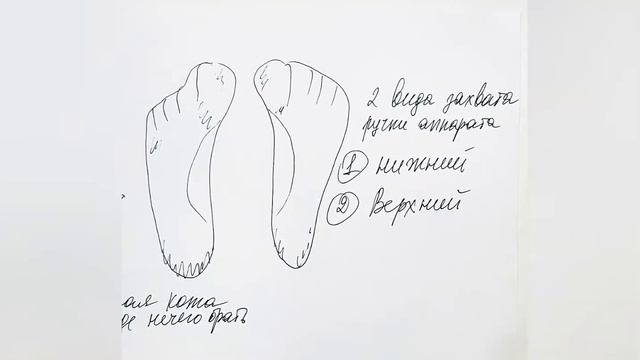 2 вида захвата
ручки аппарата
1 нижний
2 Верхний
кожа
нечего брать